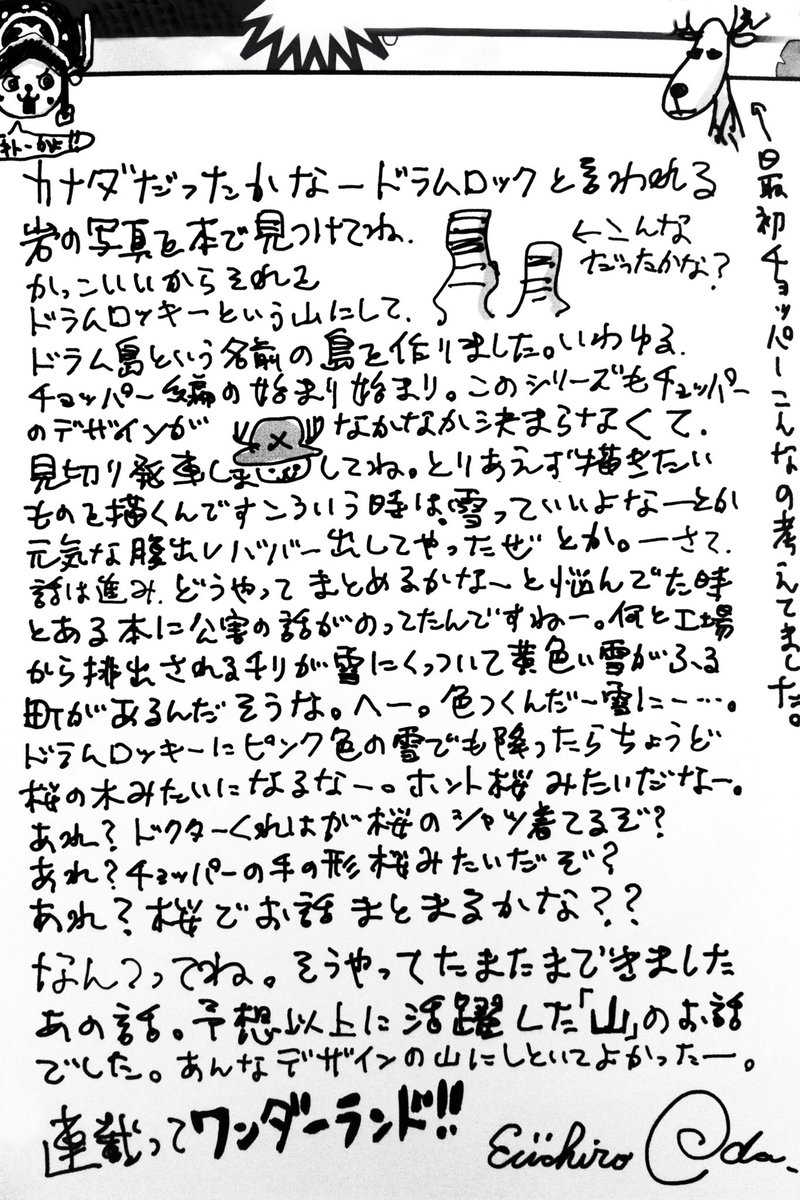 カナダだったかなードラムロックと言われる
岩の写真を本で見つけてね、
←こんな
だったかな？
かっこいいからそれを
ドラムロッキーという山にして、
ドラム島という名前の島を作りました。いわゆる、
チョッパー編の始まり始まり。このシリーズもチョッパー
のデザインが なかなか決まらなくて、
見切り発車しまじ してね。とりあえず描きたい
ものを描くんですこういう時は、雪っていいよなーとか
元気な腹出しババー出してやったぜとか。ーさて、
話は進み、どうやってまとめるかな〜と悩んでた時
とある本に公害の話がのってたんですねー。何と工場
から排出されるチリが雪にくっついて黄色い雪がふる
町があるんだそうな。へー。色つくんだー雪にー…。
ドラムロッキーにピンク色の雪でも降ったらちょうど
桜の木みたいになるなー。ホント桜みたいだなー。
あれ？ドクターくれはが桜のシャツ着てるぞ？
あれ？チョッパーの手の形桜みたいだぞ？
あれ？桜でお話まとまるかな？？
なんつってね。そうやってたまたまできました
あの話。予想以上に活躍した「山」のお話
でした。あんなデザインの山にしといてよかったー。
連載ってワンダーランド!!
Eiichiro Oda
↑最初チョッパーこんなの考えてました。